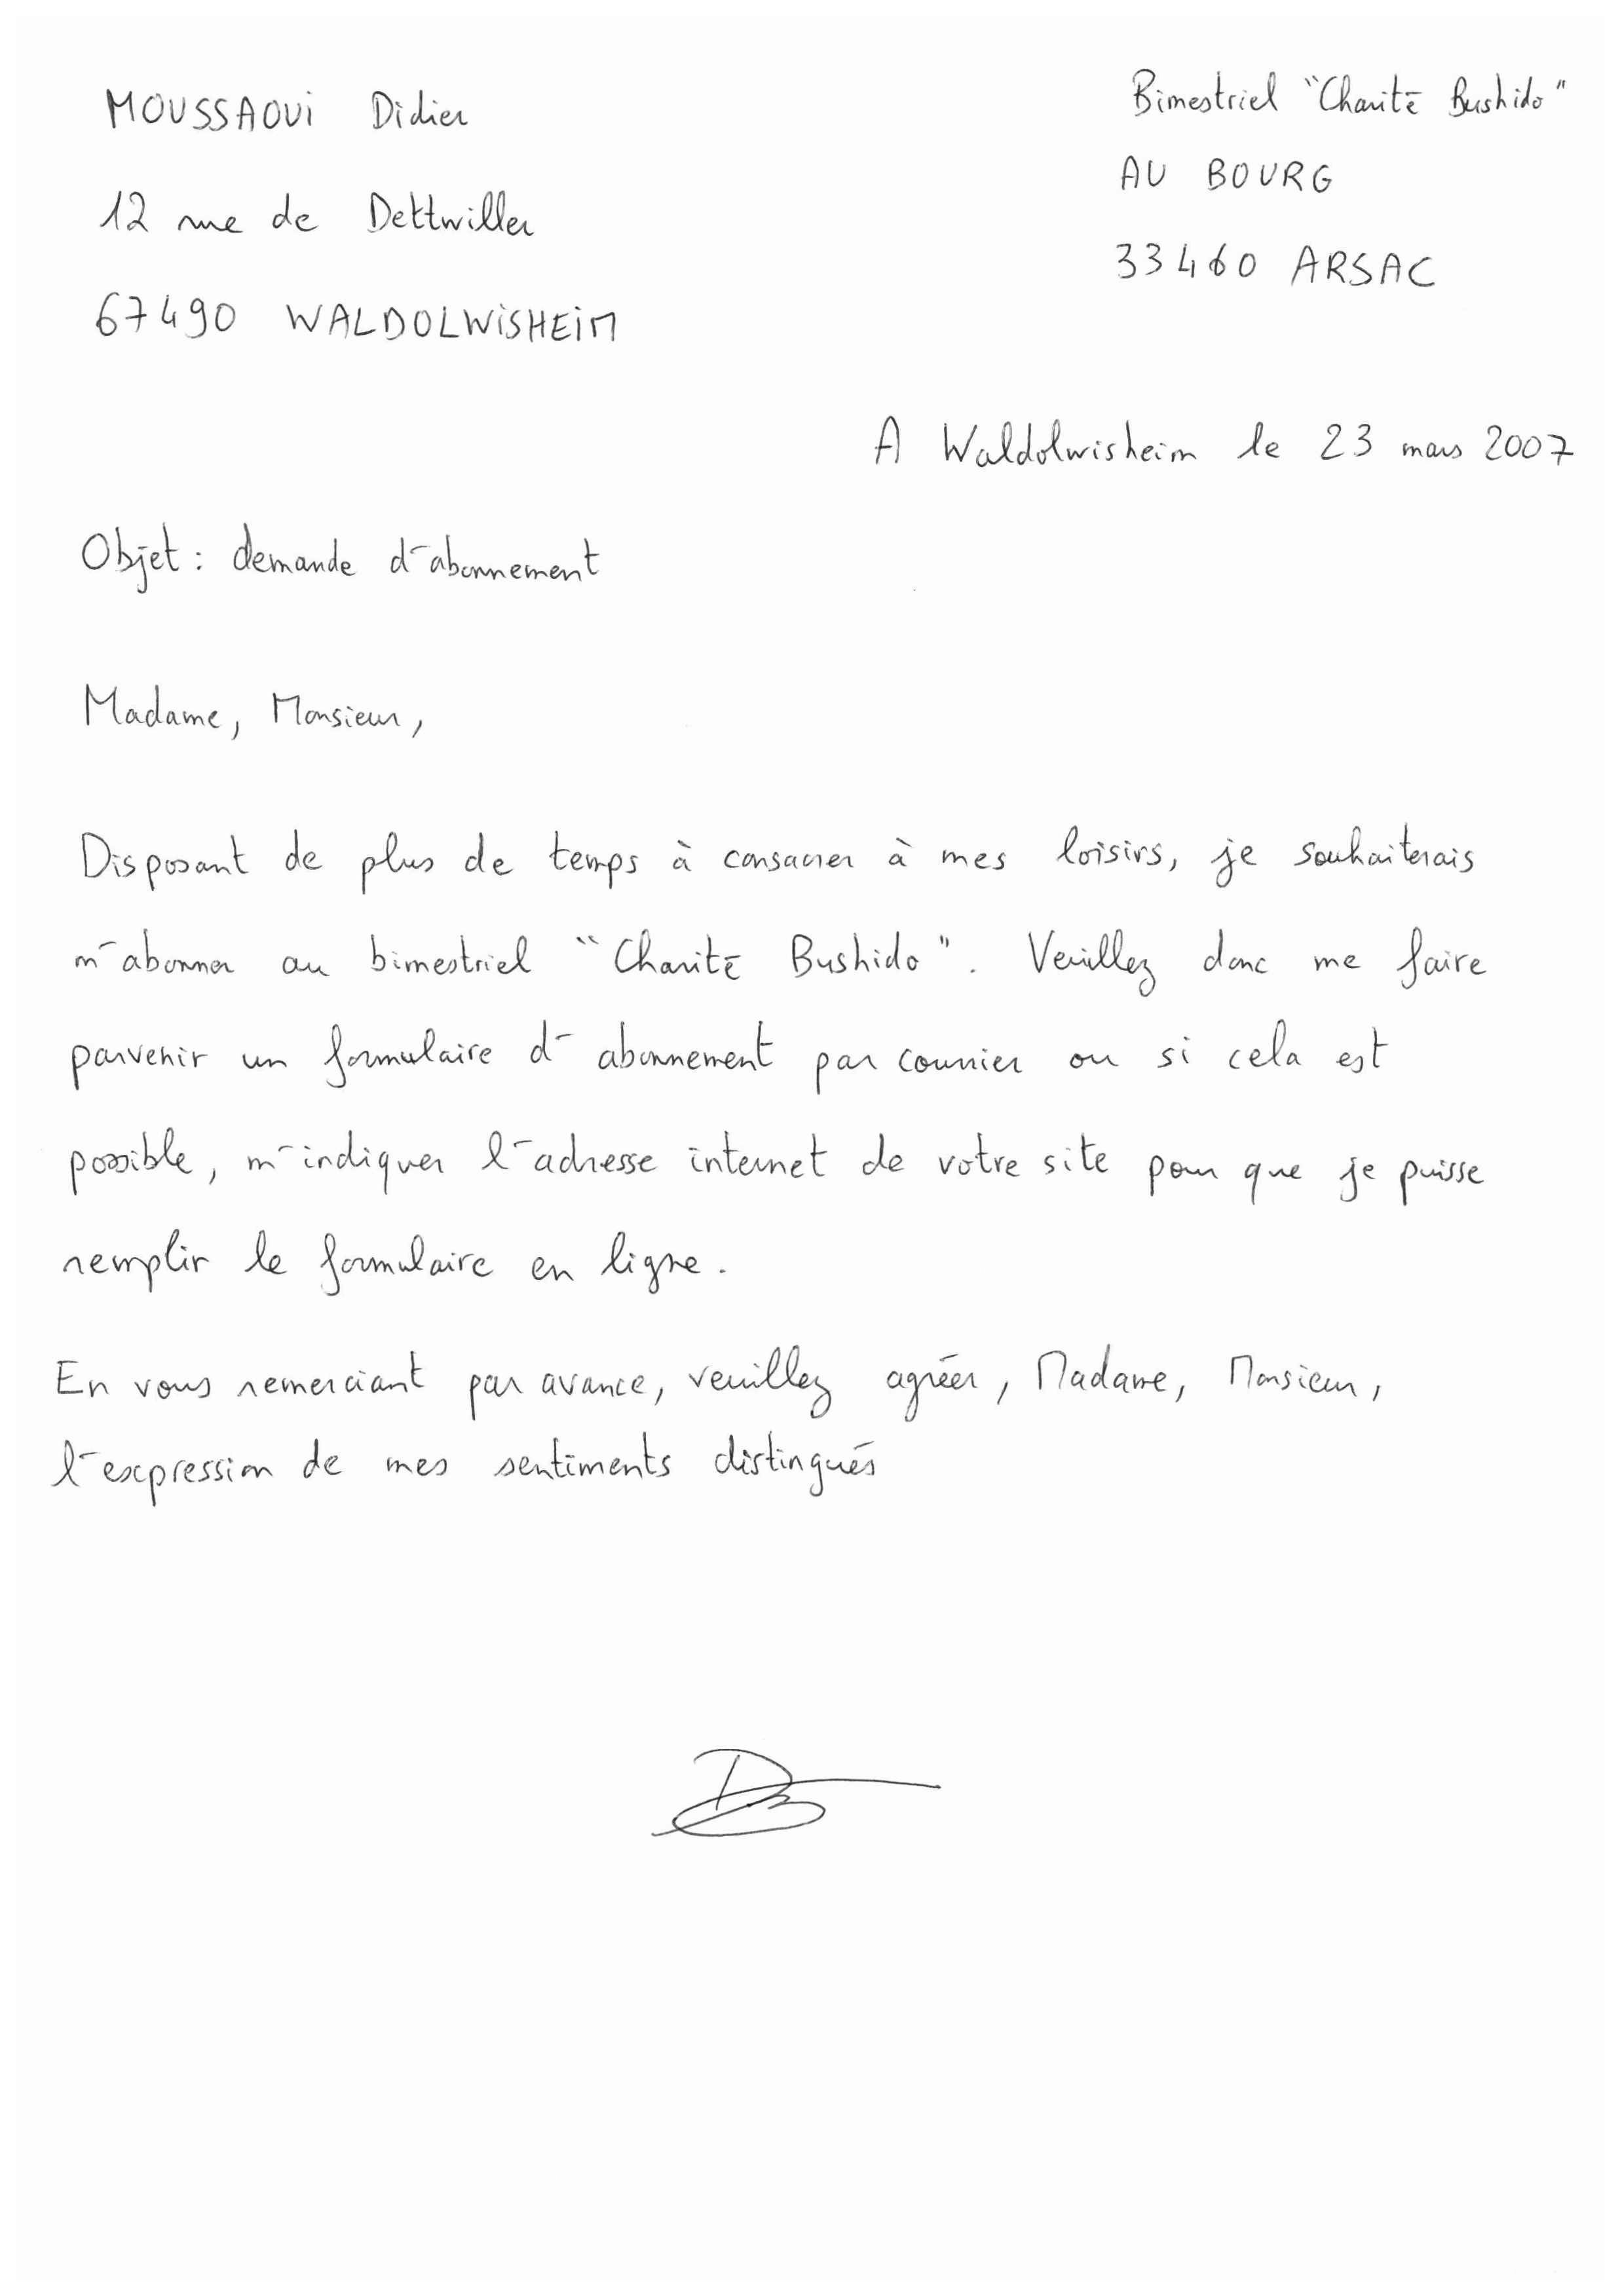 MOUSSAOUI Didier
12 rue de Dettwiller
67490 WALDOLWISHEIM
Bimestriel "Charité Bushido"
AU BOURG
33460 ARSAC
A Waldolwisheim le 23 mars 2007
Objet : demande d'abonnement
Madame, Monsieur,
Disposant de plus de temps à consacrer à mes loisirs, je souhaiterais
m'abonner au bimestriel "Charité Bushido". Veuillez donc me faire
parvenir un formulaire d'abonnement par courrier ou si cela est
possible, m'indiquer l'adresse internet de votre site pour que je puisse
remplir le formulaire en ligne.
En vous remerciant par avance, veuillez agréer, Madame, Monsieur,
l'expression de mes sentiments distingués